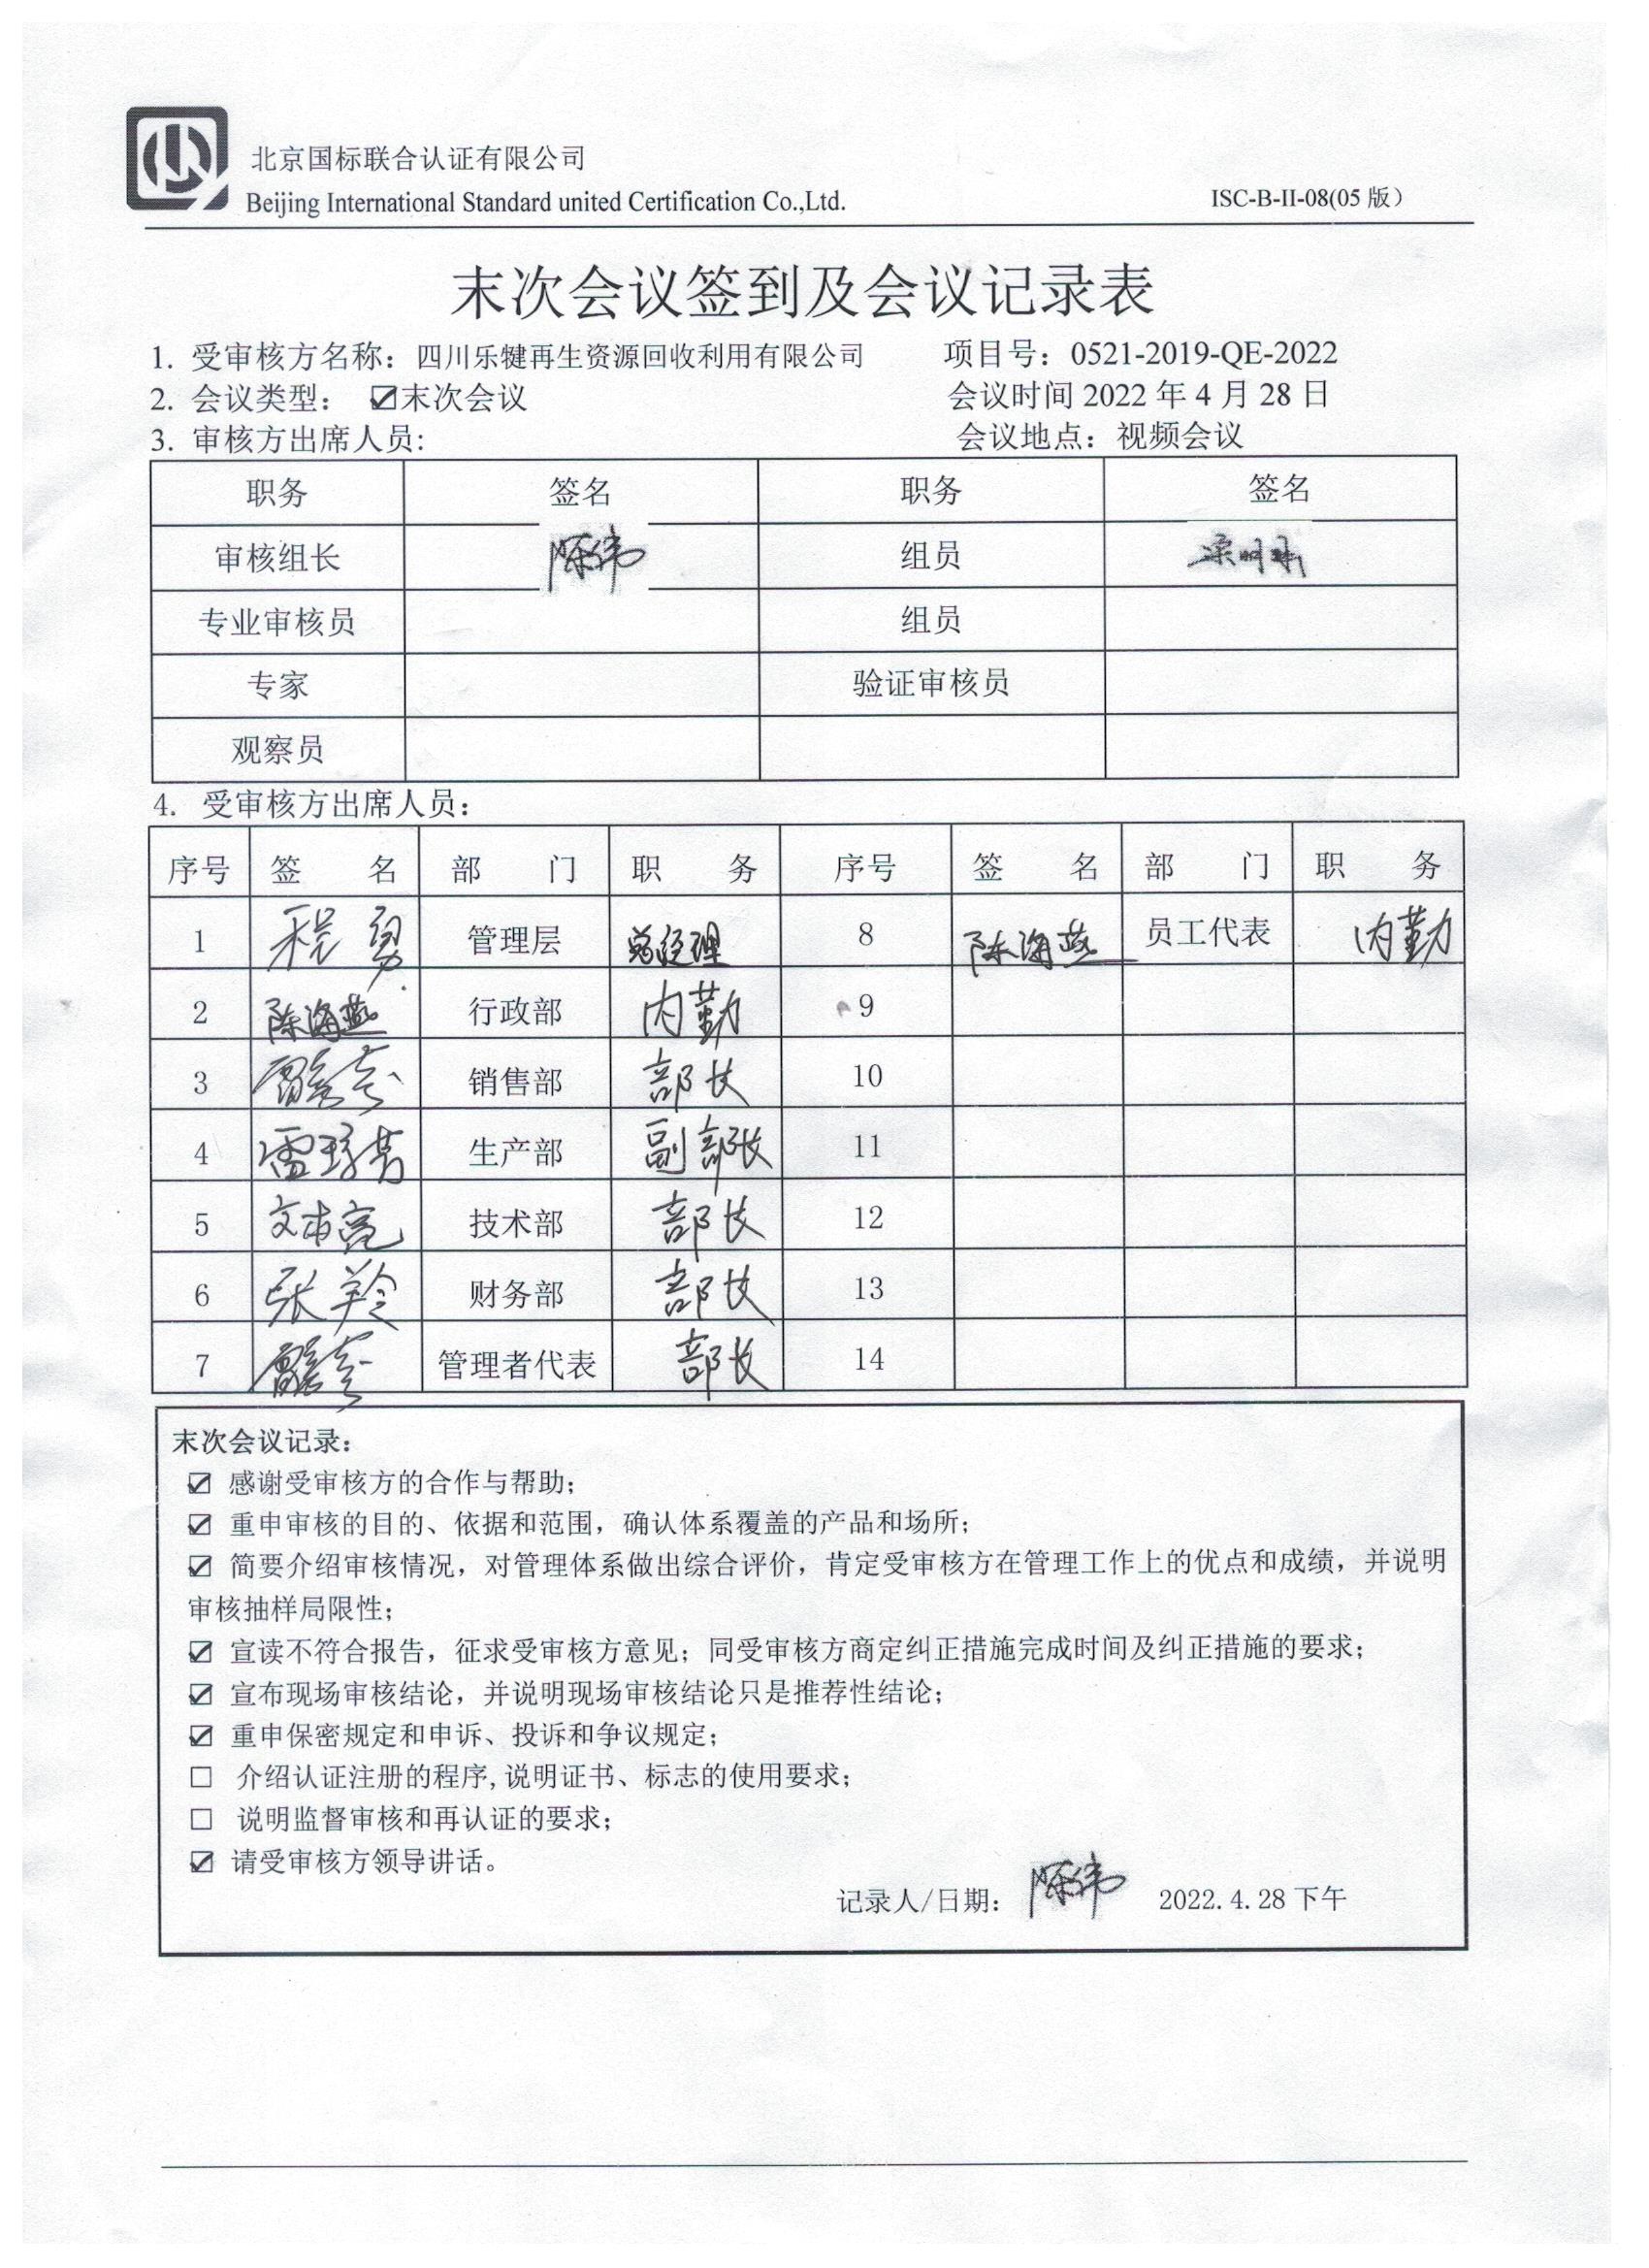 北京国标联合认证有限公司
Beijing International Standard united Certification Co.,Ltd.
ISC-B-II-08(05 版)
末次会议签到及会议记录表
1. 受审核方名称：四川乐犍再生资源回收利用有限公司 项目号：0521-2019-QE-2022
2. 会议类型： ☑末次会议 会议时间 2022 年 4 月 28 日
3. 审核方出席人员: 会议地点：视频会议
职务 签名 职务 签名
审核组长 陈伟 组员
专业审核员 组员
专家 验证审核员
观察员
4. 受审核方出席人员：
序号 签 名 部 门 职 务 序号 签 名 部 门 职 务
1 程勇 管理层 总经理 8 陈海燕 员工代表 内勤
2 陈海燕 行政部 内勤 9
3 销售部 部长 10
4 生产部 副部长 11
5 文本亮 技术部 部长 12
6 张羚 财务部 部长 13
7 管理者代表 部长 14
末次会议记录：
☑ 感谢受审核方的合作与帮助；
☑ 重申审核的目的、依据和范围，确认体系覆盖的产品和场所；
☑ 简要介绍审核情况，对管理体系做出综合评价，肯定受审核方在管理工作上的优点和成绩，并说明
审核抽样局限性；
☑ 宣读不符合报告，征求受审核方意见；同受审核方商定纠正措施完成时间及纠正措施的要求；
☑ 宣布现场审核结论，并说明现场审核结论只是推荐性结论；
☑ 重申保密规定和申诉、投诉和争议规定；
☐ 介绍认证注册的程序,说明证书、标志的使用要求；
☐ 说明监督审核和再认证的要求；
☑ 请受审核方领导讲话。
记录人/日期： 陈伟 2022.4.28 下午